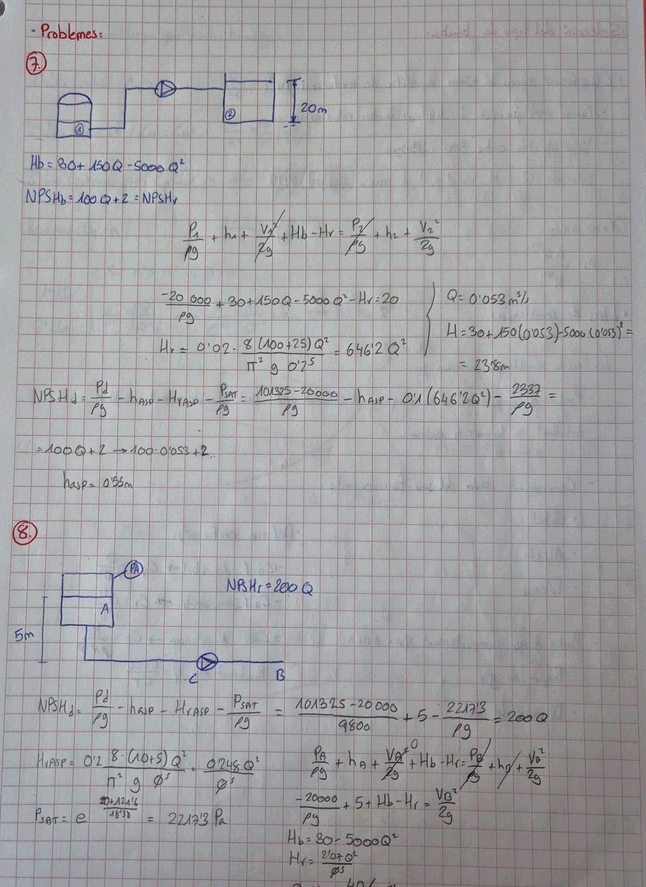 · Problemes:
7.
① ② 20m
Hb = 30 + 150Q - 5000Q²
NPSHb = 100Q + 2 = NPSHr
P₁/ρg + h₁ + V₁²/2g + Hb - Hr = P₂/ρg + h₂ + V₂²/2g
-20 000/ρg + 30 + 150Q - 5000Q² - Hr = 20
Q = 0'053 m³/s
Hr = 0'02 · 8(100+25)Q²/π² g 0'2⁵ = 646'2 Q²
H = 30 + 150(0'053) - 5000(0'053)² =
= 23'8m
NPSHd = Pd/ρg - hASP - HrASP - PSAT/ρg = 101325-20000/ρg - hASP - 0'1(646'2Q²) - 2337/ρg =
= 100Q + 2 → 100·0'053 + 2
hasp = 0'55m
8.
PA
NPSHr = 200Q
A
5m
C B
NPSHd = Pd/ρg - hasp - HrASP - PSAT/ρg = 101325-20000/9800 + 5 - 2217'3/ρg = 200Q
HrASP = 0'2 8·(10+5)Q²/π² g φ⁵ = 0'248Q²/φ⁵
PA/ρg + hA + VA²/2g 0 + Hb - Hr = PB/ρg + hB + VB²/2g
-20000/ρg + 5 + Hb - Hr = VB²/2g
= 2217'3 Pa
Hb = 30 - 5000Q²
Hr = 2'07Q²/φ⁵